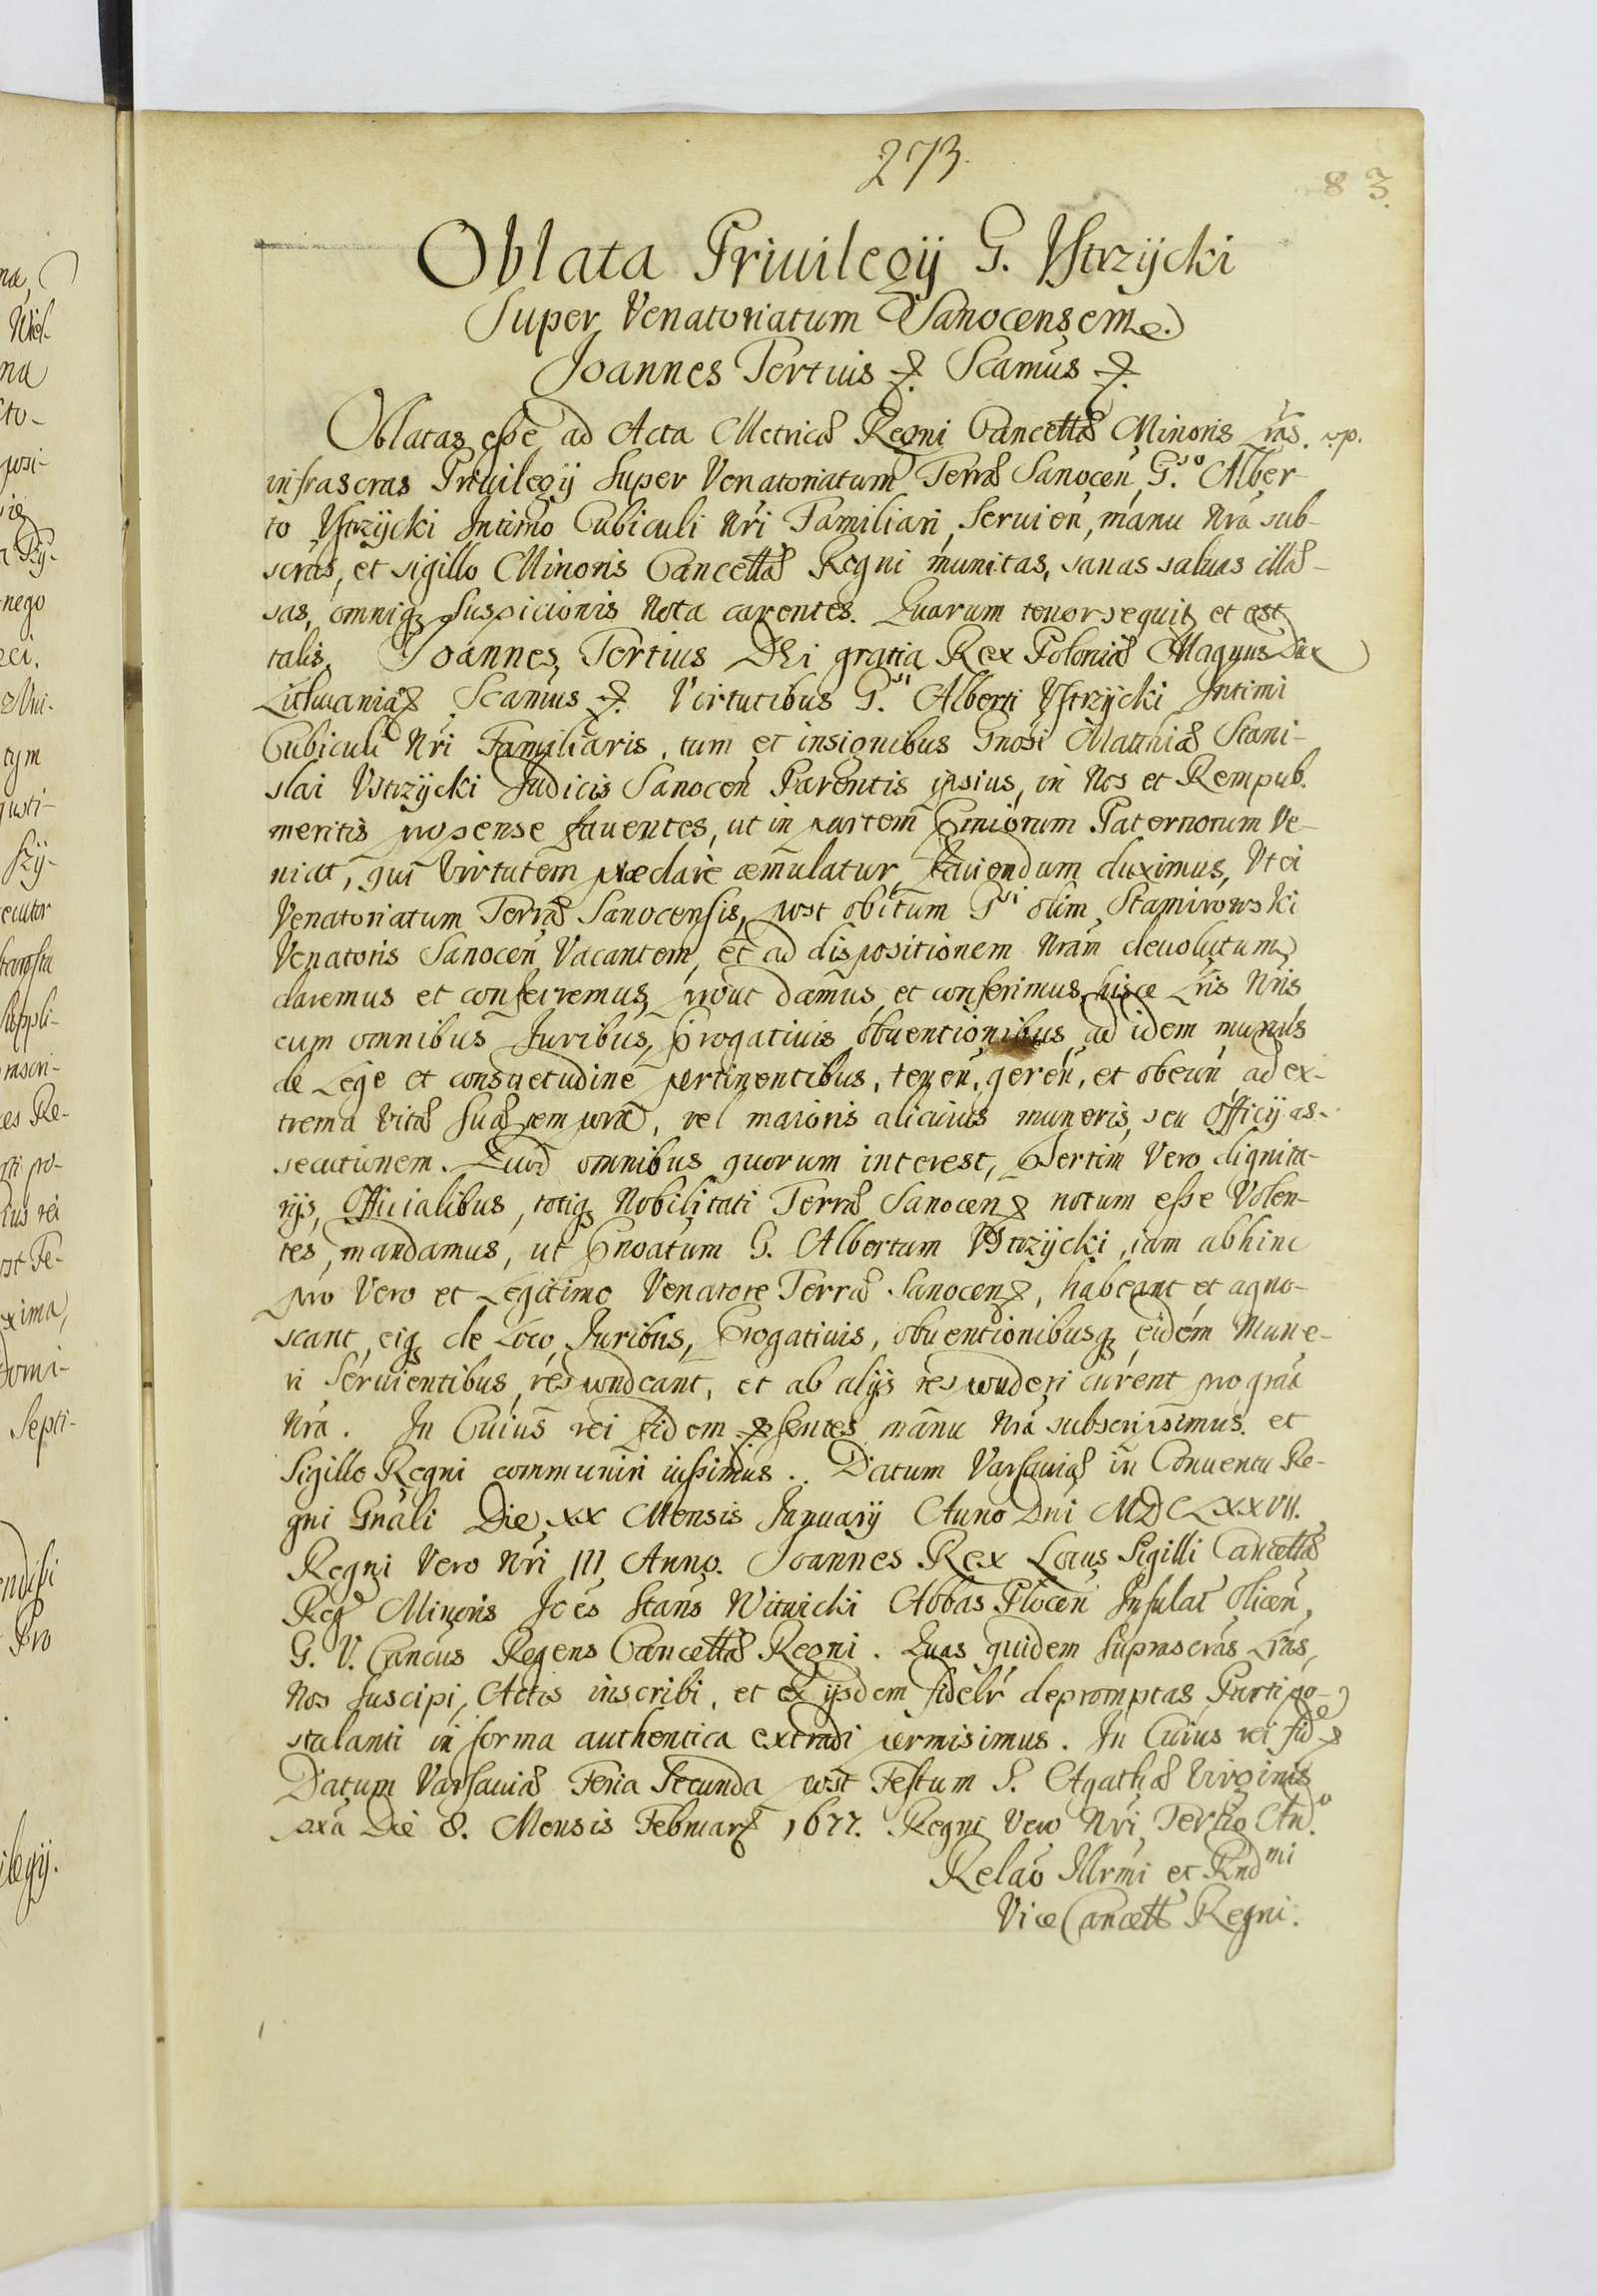 273.
83.
Oblata Priuilegij G. Vstrzycki
Super Venatoriatum Sanocensem.
Joannes Tertius &. Scamus &.
Oblatas esse ad Acta Metricæ Regni Cancellæ Minoris Lrãs. op.
infrascras Priuilegij Super Venatoriatum Terræ Sanocen, G.so Alber-
to Vstrzycki Intimo Cubiculi Nri Familiari, Seruien, manu Nra sub-
scras, et sigillo Minoris Cancellæ Regni munitas, sanas saluas illæ-
sas, omniq; Suspicionis Nota carentes. Quarum tenor sequit et est
talis. Joannes Tertius DEi gratia Rex Poloniæ Magnus Dux
Lithuaniæ & Scamus &. Virtutibus G.si Alberti Vstrzycki Intimi
Cubiculi Nri Familiaris, tum et insignibus Gnosi Matthiæ Stani-
slai Vstrzycki Judicis Sanocen Parentis ipsius, in Nos et Rempub.
meritis propense fauentes, ut in partem Pmiorum Paternorum Ve-
niat, qui Virtutem præclare æmulatur, fauendum duximus, Vt ei
Venatoriatum Terræ Sanocensis, post obitum Gsi olim Stamirowski
Venatoris Sanocen Vacantem, et ad dispositionem Nram deuolutum
daremus et conferremus, prout damus et conferimus hisce Lris Nris
cum omnibus Juribus, Progatiuis obuentionibus ad idem munus
de Lege et consuetudine pertinentibus, tenen, geren, et obeun ad ex-
trema Vitæ Suæ tempora, vel maioris alicuius muneris, seu Officij as-
secutionem. Quod omnibus quorum interest, Psertim Vero dignita-
rijs, Officialibus, totiq; Nobilitati Terræ Sanocen & notum esse Volen-
tes, mandamus, ut Pnoatum G. Albertum Vstrzycki, iam abhinc
pro Vero et Legitimo Venatore Terræ Sanocen &, habeant et agno-
scant, eiq; de Loco, Juribus, Progatiuis, obuentionibusq; eidem Mune-
ri Seruientibus respondeant, et ab alijs responderi curent pro gra
Nra. In Cuius rei fidem psentes manu Nra subscripsimus. et
Sigillo Regni communiri iussimus. Datum Varsauiæ in Conuentu Re-
gni Gnali Die XX Mensis Januarij Anno Dni MDCLXXVII.
Regni Vero Nri III Anno. Joannes Rex Locus Sigilli Cancellæ
Regⁿ Minoris Joes Stans Witwicki Abbas Plocen Insulat Olicen,
G. V. Cancus Regens Cancellæ Regni. Quas quidem Suprascras Lras,
Nos suscipi, Actis inscribi, et ex ijsdem fidelr depromptas Parti po-
stulanti in forma authentica extradi permisimus. In Cuius rei fidē &
Datum Varsauiæ Feria Secunda post Festum S. Agathæ Virginis
pxa Die 8. Mensis Februarij 1677. Regni Vero Nri Tertio Ano.
Relao Illrmi et Rndmi
Vice Cancell Regni.